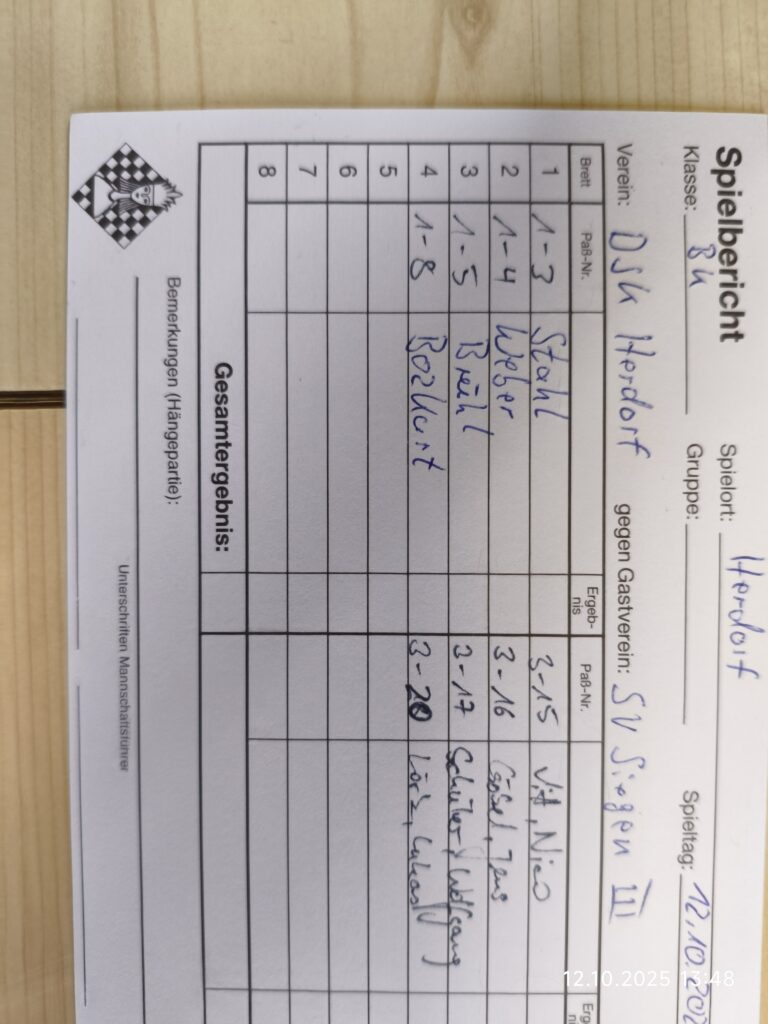 Spielbericht
Spielort: Herdorf
Klasse: BK Gruppe: Spieltag: 12.10.202
Verein: DSK Herdorf gegen Gastverein: SV Siegen III
Brett Paß-Nr. Ergeb-nis Paß-Nr. Erg
1 1-3 Stahl 3-15 Vitt, Nico
2 1-4 Weber 3-16 Jens
3 1-5 Brühl 3-17 Schüler, Wolfgang
4 1-8 Bozkurt 3-20 Lukas
5
6
7
8
Gesamtergebnis:
Bemerkungen (Hängepartie):
Unterschriften Mannschaftsführer
12.10.2025 13:48